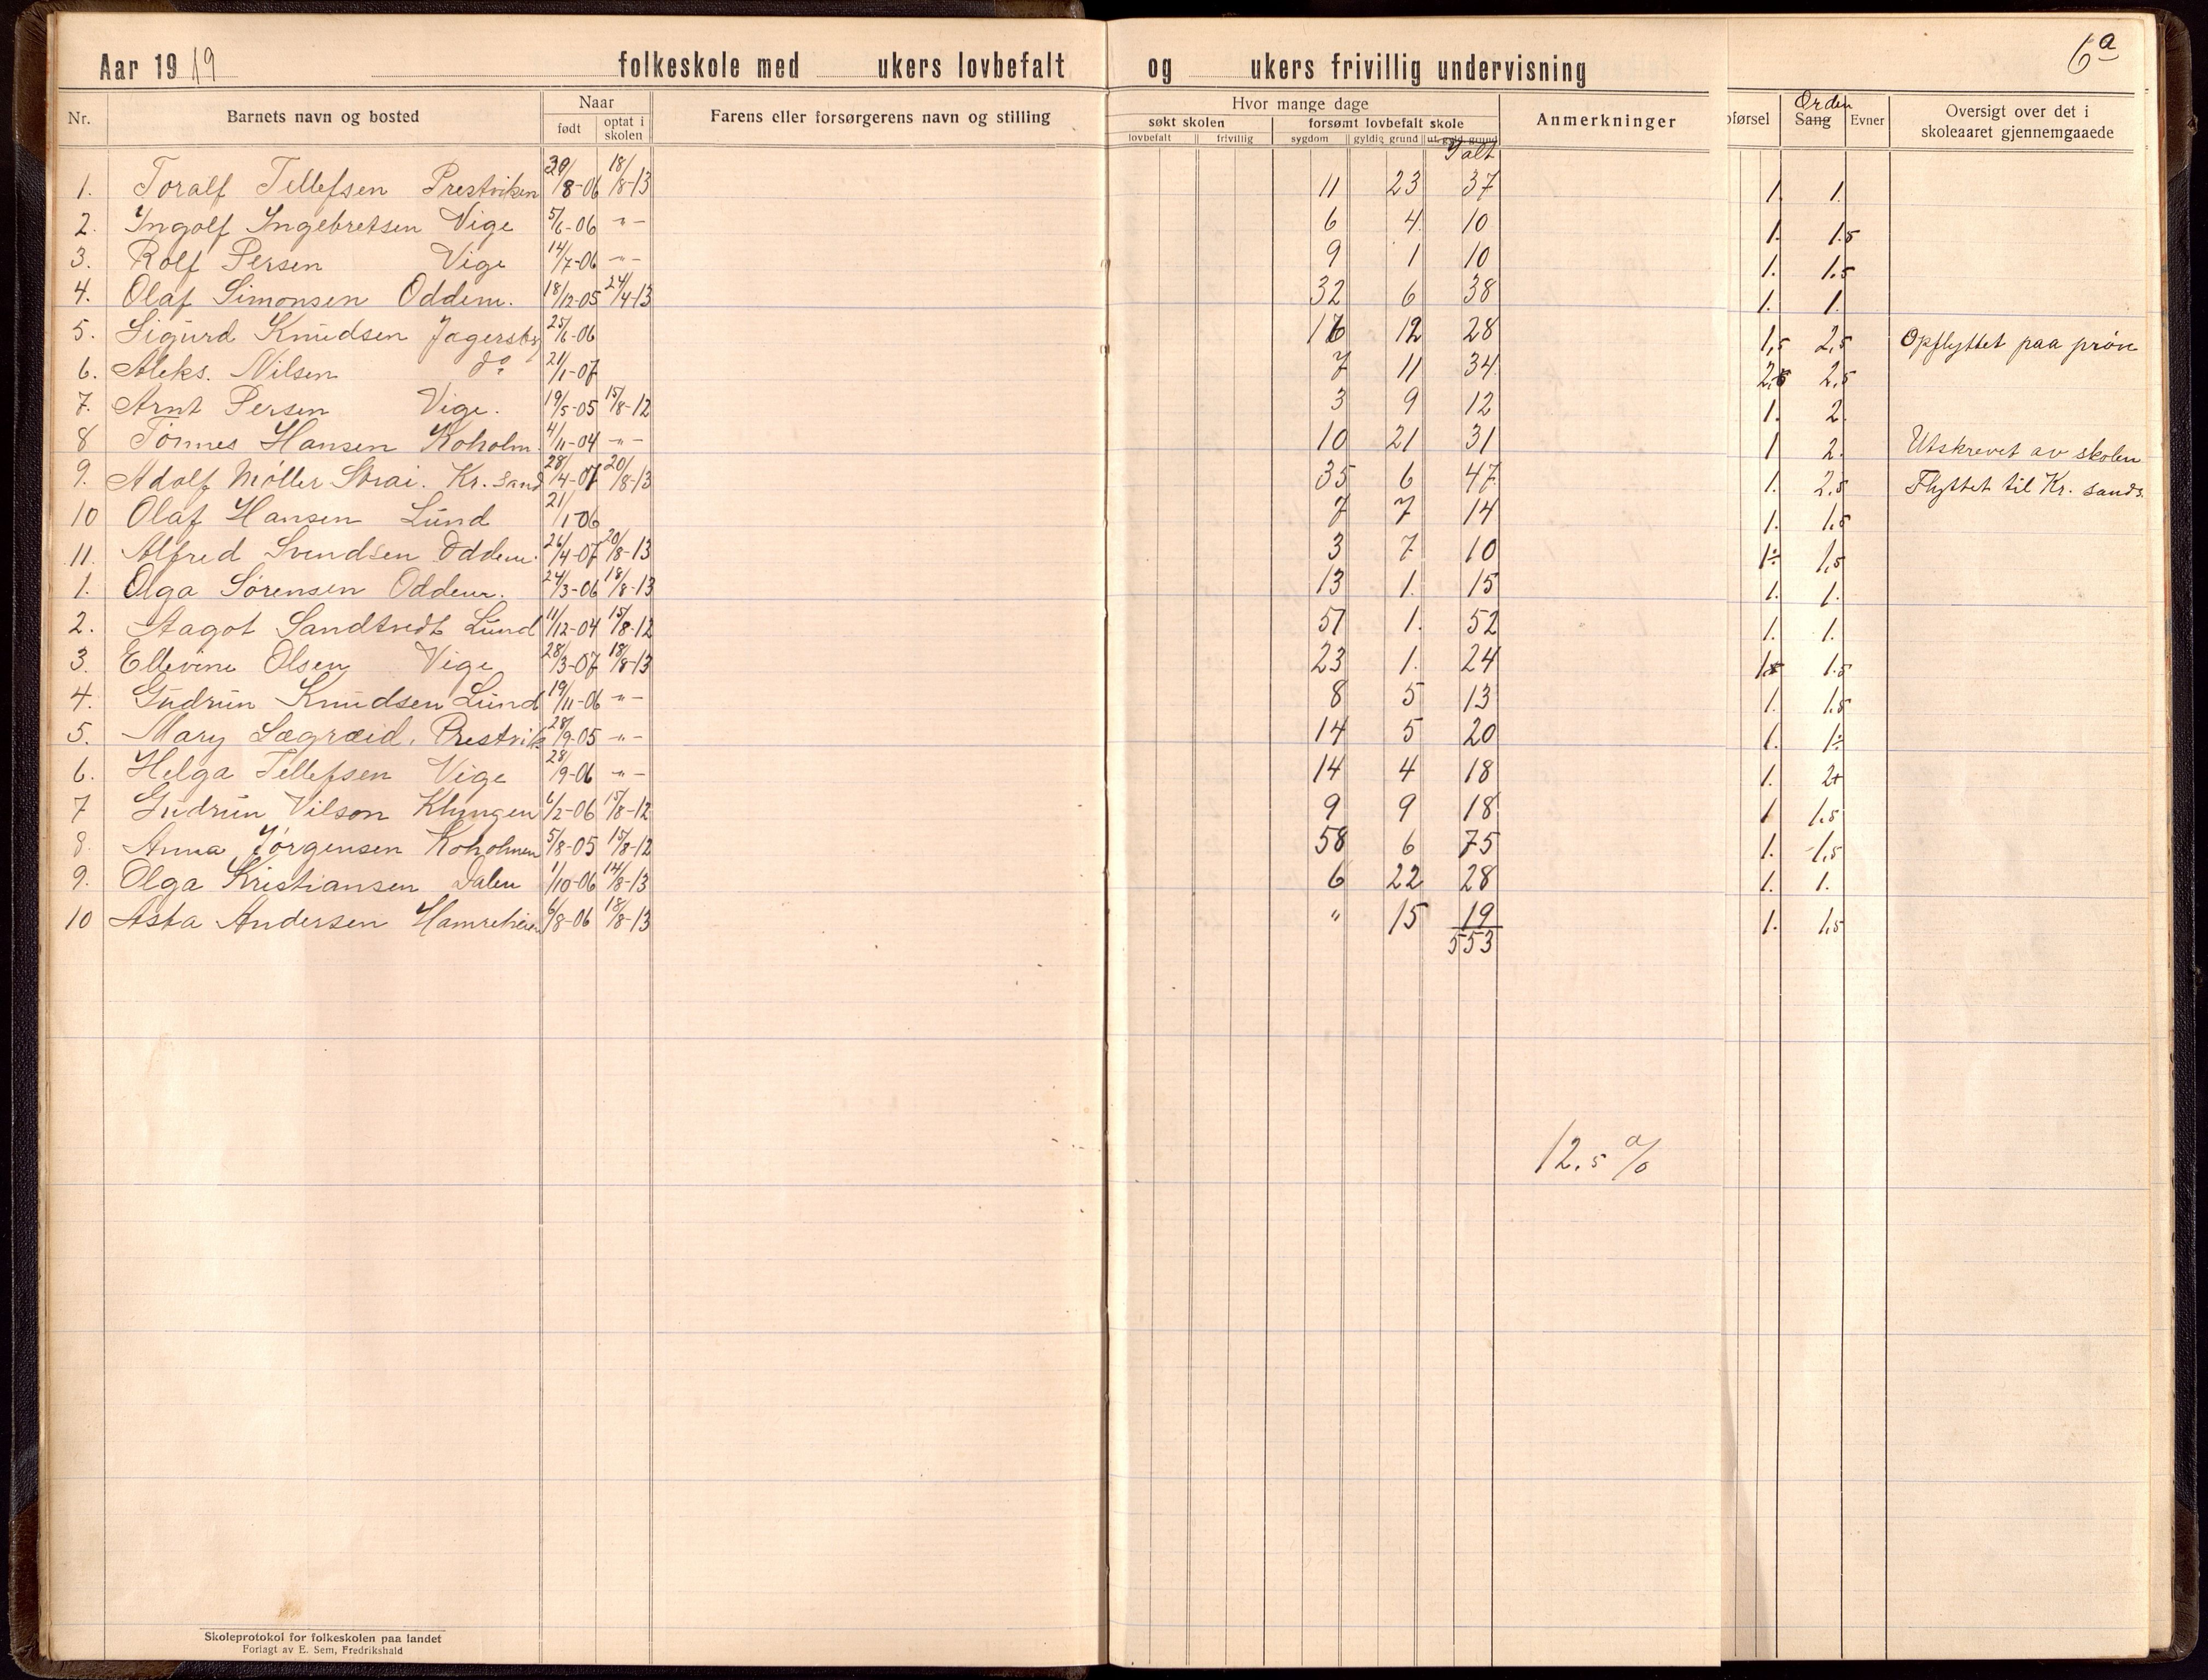 Aar 1919 folkeskole med ukers lovbefalt og ukers frivillig undervisning 6a
Nr. Barnets navn og bosted Naar født optat i skolen Farens eller forsørgerens navn og stilling Hvor mange dage søkt skolen lovbefalt frivillig forsømt lovbefalt skole sygdom gyldig grund ut. gyld. grund Ialt Anmerkninger førsel Orden Sang Evner Oversigt over det i skoleaaret gjennemgaaede
1. Toralf Tellefsen Prestviken 30/8-06 18/8-13 11 23 37 1. 1.
2. Ingolf Ingebretsen Vige 5/6-06 -"- 6 4 10 1. 1.5
3. Rolf Persen Vige 14/7-06 -"- 9 1 10 1. 1.5
4. Olaf Simonsen Oddern. 18/12-05 24/4-13 32 6 38 1. 1.
5. Sigurd Knudsen Jagersbg 25/6-06 16 12 28 1,5 2,5 Opflyttet paa prøve
6. Aleks. Nilsen do 21/1-07 7 11 34 2,5 2,5
7. Arnt Persen Vige. 19/5-05 15/8-12 3 9 12 1. 2.
8 Tønnes Hansen Koholm. 4/11-04 -"- 10 21 31 1 2. Utskrevet av skolen
9. Adolf Møller Strai. Kr. sand 28/4-07 20/8-13 35 6 47 1. 2,5 Flyttet til Kr. sands.
10 Olaf Hansen Lund 21/1-06 7 7 14 1. 1,5
11. Alfred Svendsen Oddern. 26/4-07 20/8-13 3 7 10 1÷ 1,5
1. Olga Sørensen Oddern. 24/3-06 18/8-13 13 1. 15 1. 1.
2. Aagot Sandtvedt Lund 11/12-04 15/8-12 51 1. 52 1. 1.
3. Ellevine Olsen Vige 28/3-07 18/8-13 23 1. 24 1.5 1.5
4. Gudrun Knudsen Lund 19/11-06 -"- 8 5 13 1. 1.5
5. Mary Lægræid, Prestvik 28/9-05 -"- 14 5 20 1. 1÷
6. Helga Tellefsen Vige 28/9-06 -"- 14 4 18 1. 2+
7 Gudrun Vilson Klungen 6/2-06 15/8-12 9 9 18 1 1.5
8. Anna Jørgensen Koholmen 5/8-05 15/8-12 58 6 75 1. 1,5
9. Olga Kristiansen Dalen 1/10-06 14/8-13 6 22 28 1. 1.
10 Asta Andersen Hamreheien 6/8-06 18/8-13 " 15 19 1. 1,5
553
12,5 %
Skoleprotokol for folkeskolen paa landet
Forlagt av E. Sem, Fredrikshald